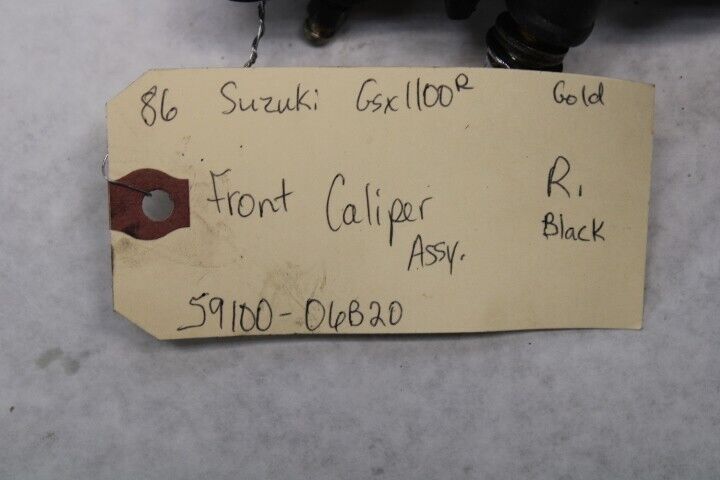 86 Suzuki Gsx1100R Gold
Front Caliper R.
Assy. Black
59100-06B20